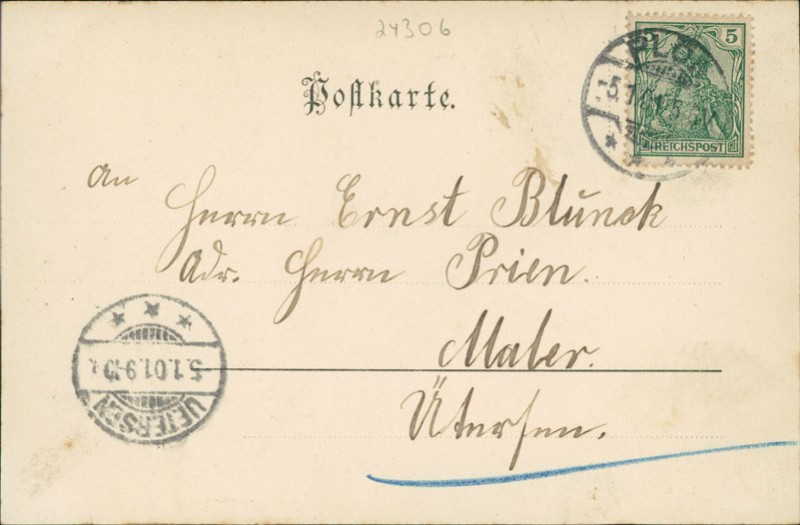 24306
Postkarte.
5
REICHSPOST
PLÖN
5.1.01.5
An
Herrn Ernst Blunck
Adr. Herrn Prien.
Maler.
Ütersen.
5.1.01.9-10
UETERSEN